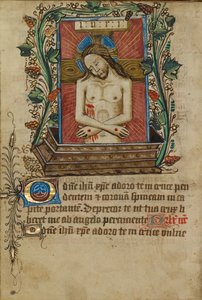 INRI
O dñe ihũ xp̃e adoro te in cruce pen
dentem et coronã spineam in ca
pite portantẽ. Deprecor te ut tua crux li
beret me ab angelo percuciente
O dñe ihũ xp̃e adoro te in cruce vulne